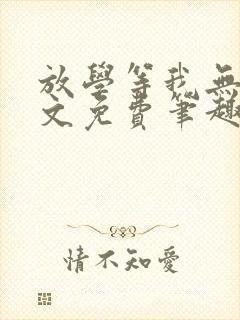 放學等我無
文免費筆趣
情不知愛